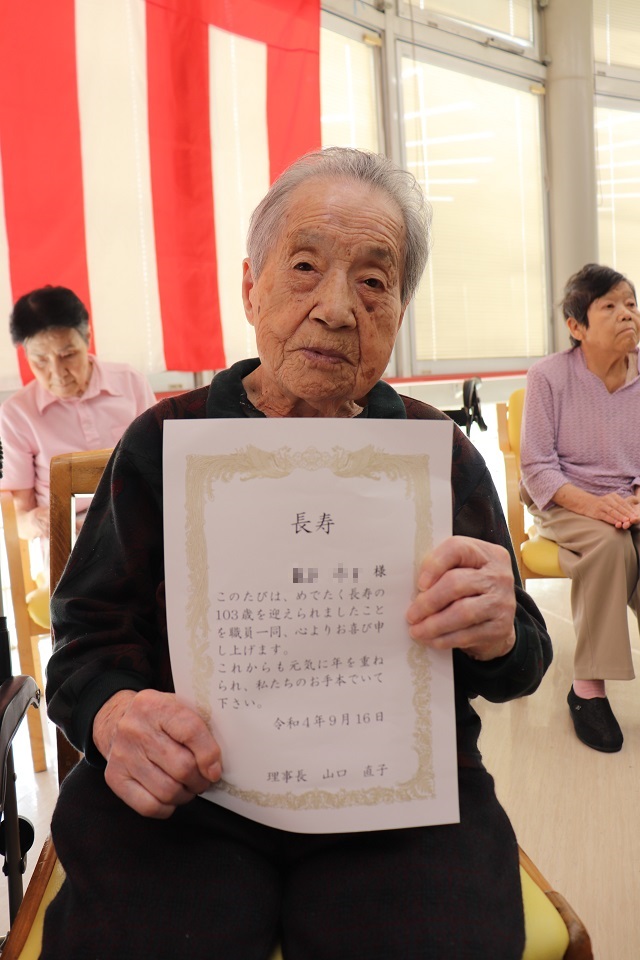 長寿
様
このたびは、めでたく長寿の
103歳を迎えられましたこと
を職員一同、心よりお喜び申
し上げます。
これからも元気に年を重ね
られ、私たちのお手本でいて
下さい。
令和4年9月16日
理事長 山口 直子